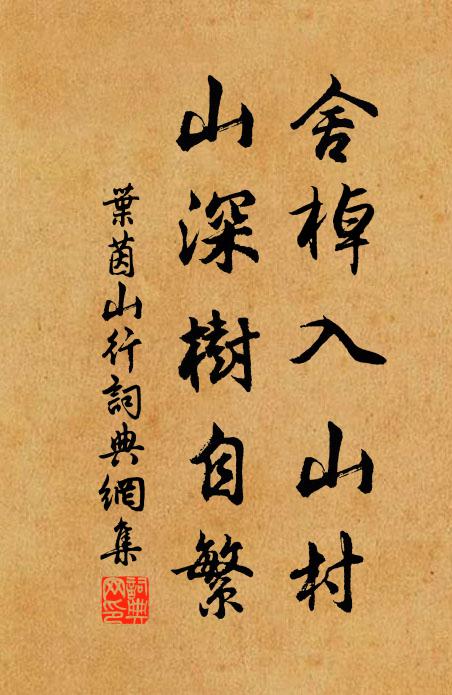 舍棹入山村
山深樹自繁
葉茵山行詞典網集
詞典
网印